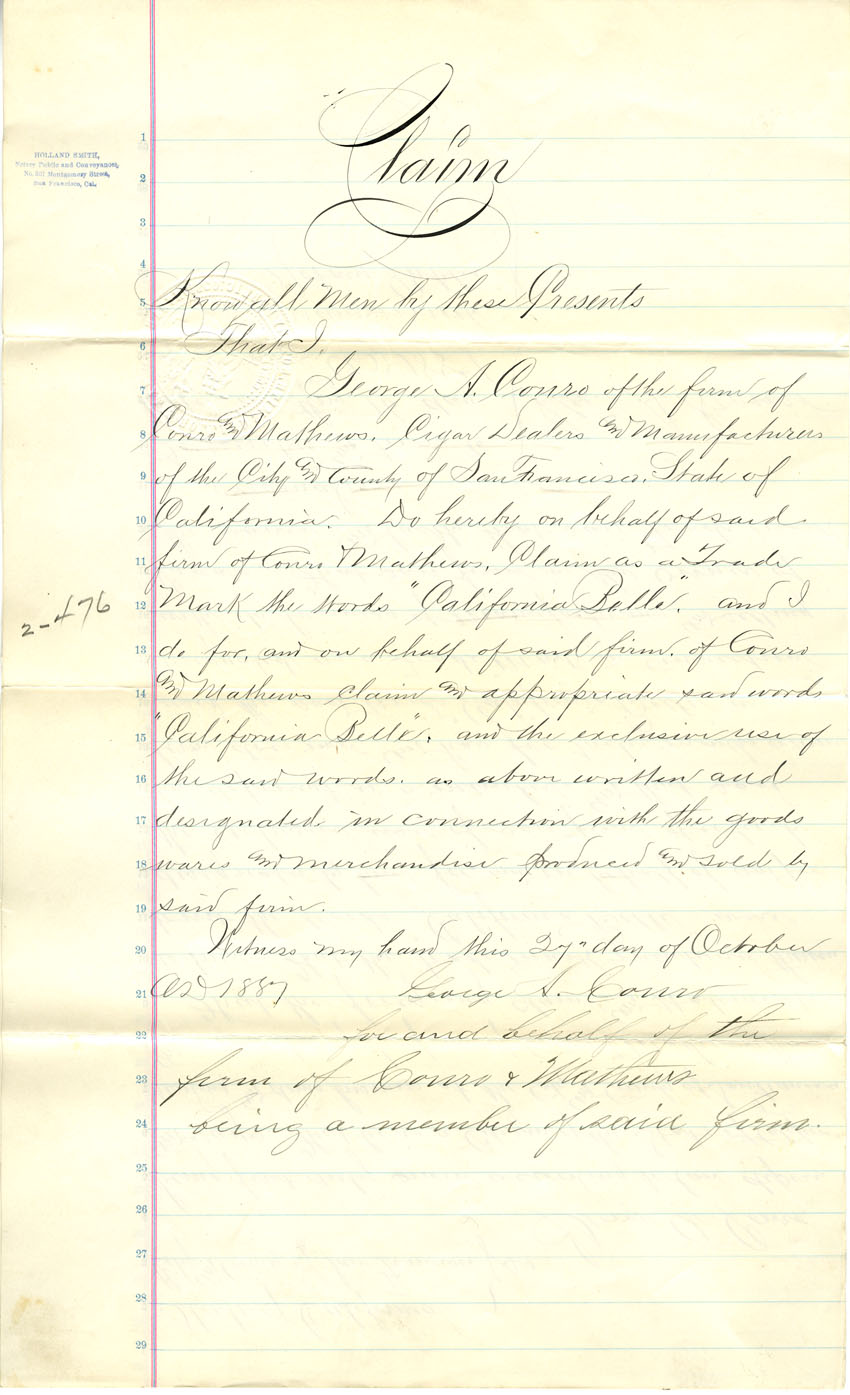 Claim
HOLLAND SMITH,
Notary Public and Conveyancer,
Montgomery Street,
San Francisco, Cal.
1
2
3
4
5 Know all Men by these Presents
6 That I.
7 George A. Conro of the firm of
8 Conro and Mathews. Cigar Dealers and Manufacturers
9 of the City and County of San Francisco. State of
10 California. Do hereby on behalf of said
11 firm of Conro & Mathews. Claim as a Trade
12 Mark the words "California Belle". and I
2-476
13 do for, and on behalf of said firm. of Conro
14 and Mathews claim and appropriate said words
15 "California Belle". and the exclusive use of
16 the said words. as above written and
17 designated in connection with the goods
18 wares and merchandise produced and sold by
19 said firm.
20 Witness my hand this 27" day of October
21 AD 1887 George A. Conro
22 for and behalf of the
23 firm of Conro & Mathews
24 being a member of said firm.
25
26
27
28
29